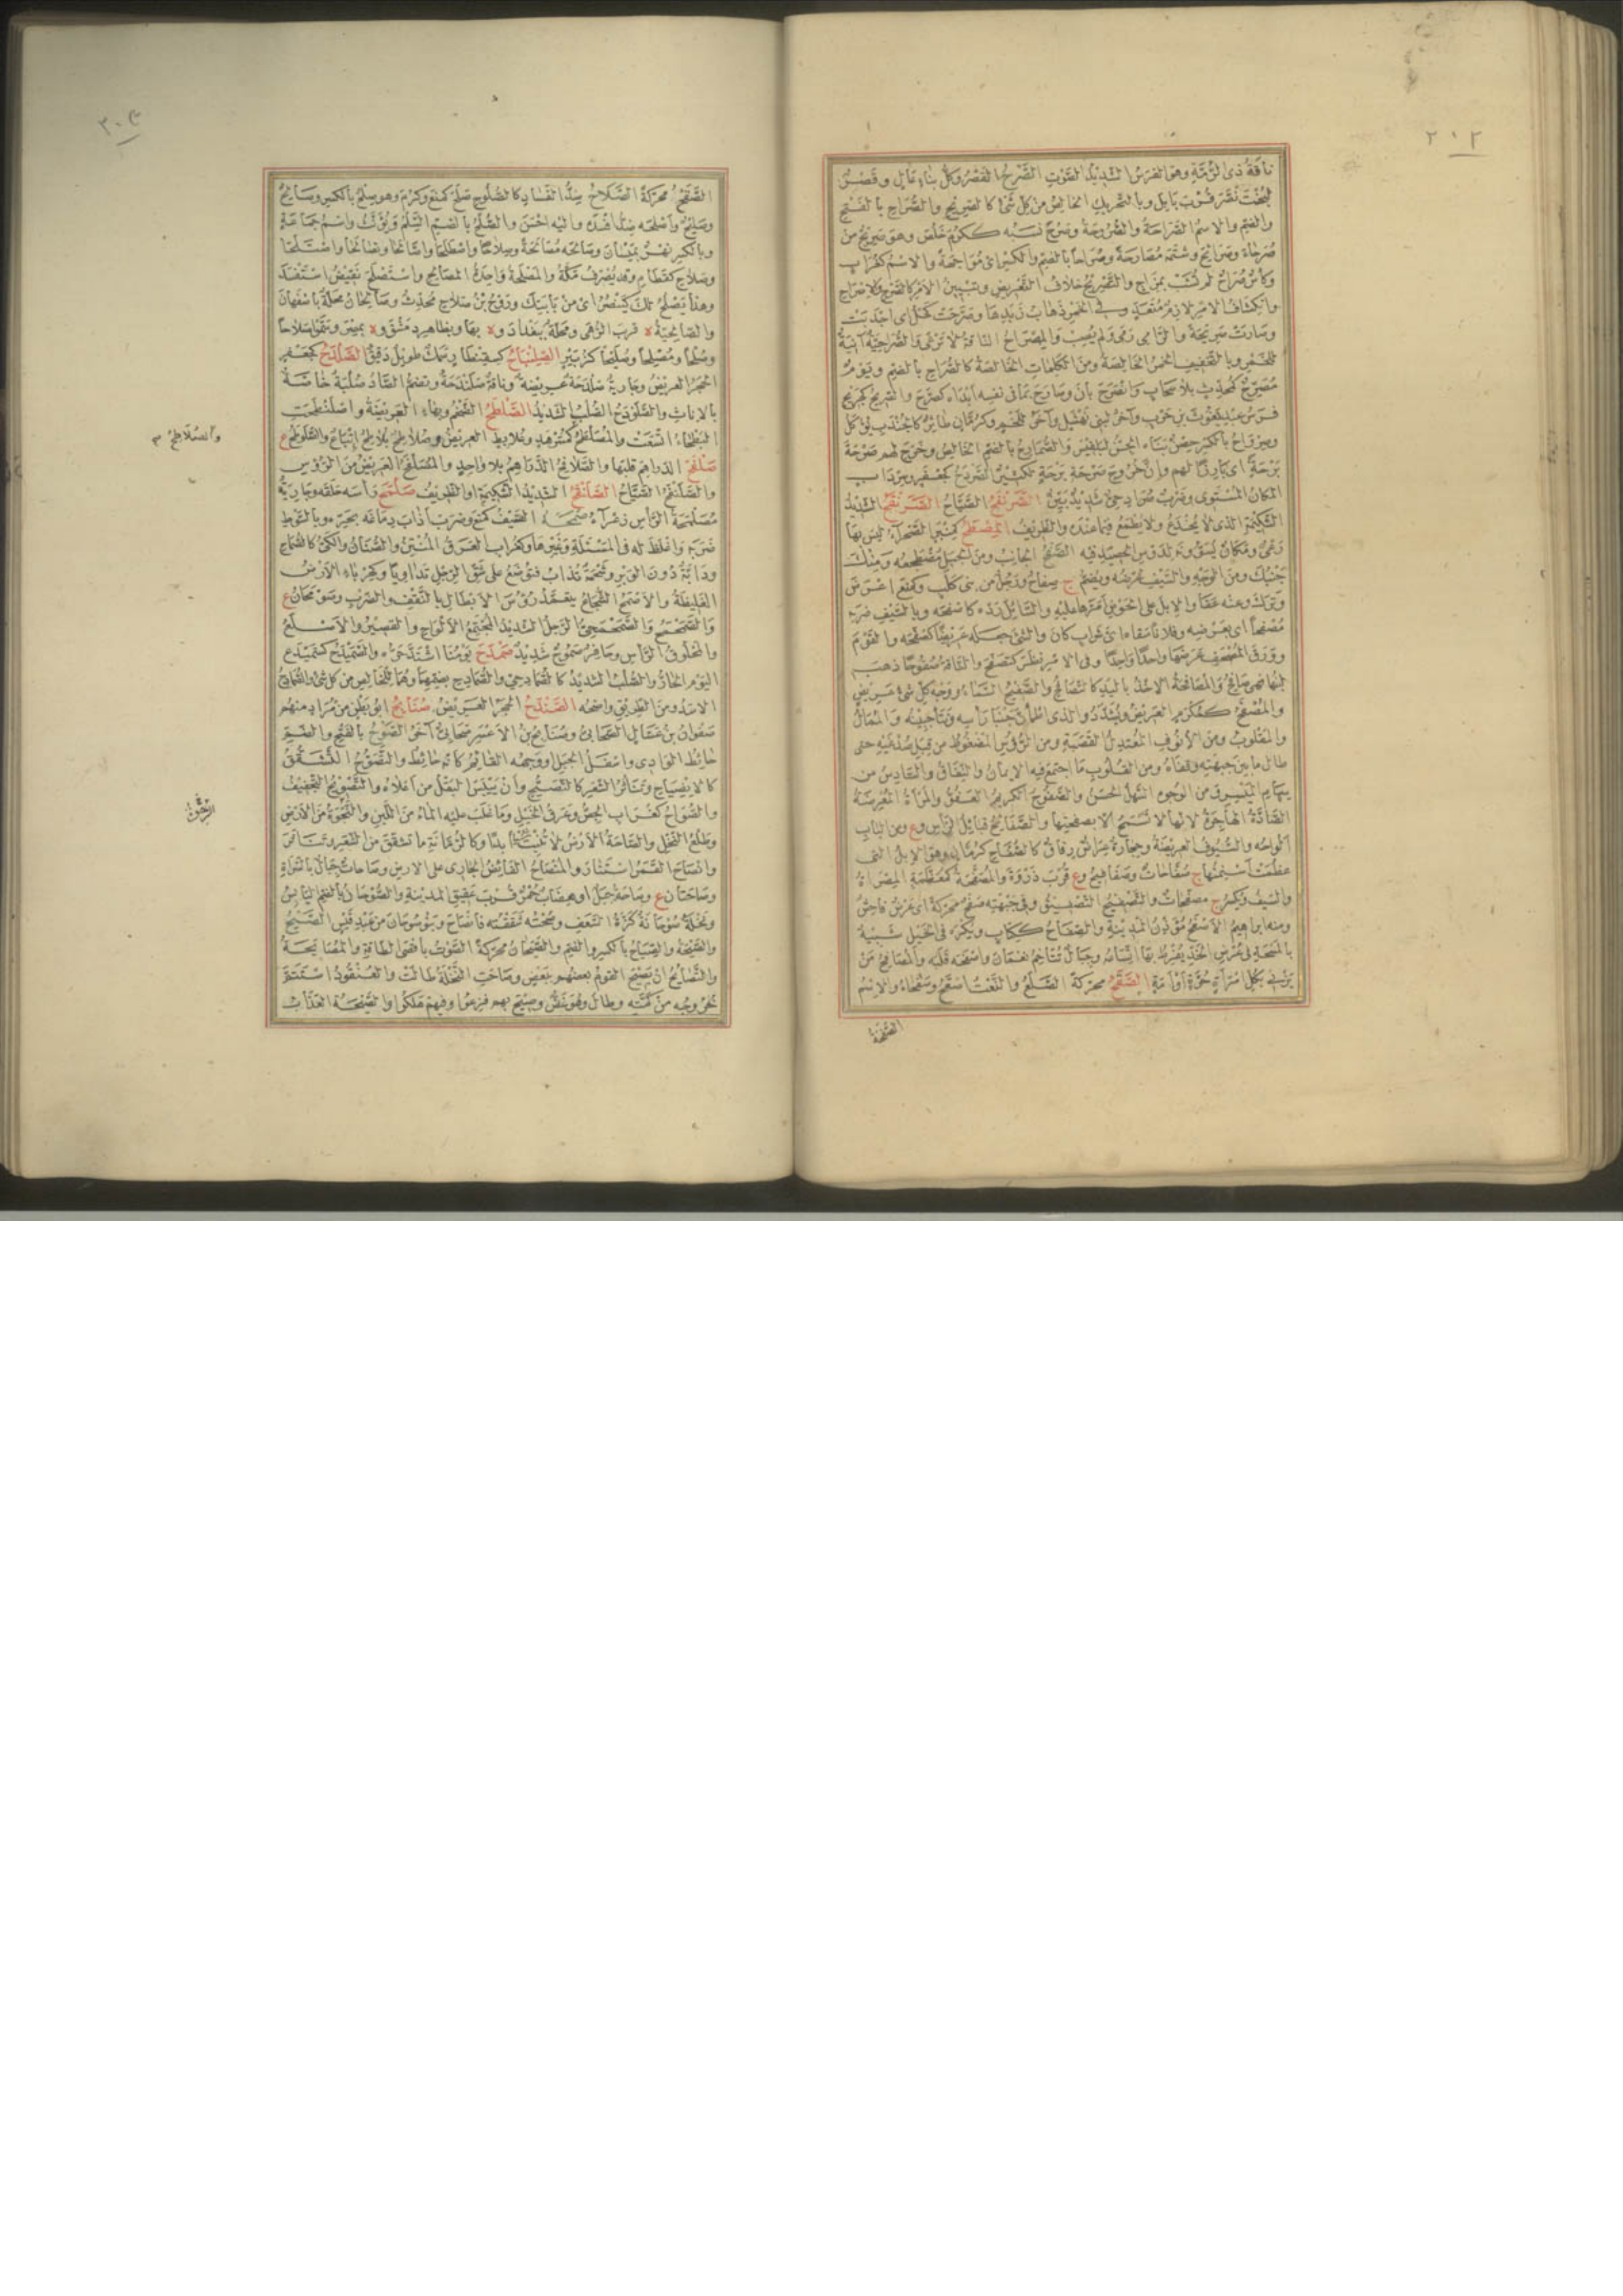 ٢٠٢
ناقة ذى الرمة وهو الفرس الشديد الصوت الصرح القصر وكل بناء عال وقصر
لبخت نصر قرب بابل وبالتحريك الخالص من كل شئ كالصريح والصراح بالفتح
والضم والاسم الصراحة والصروحة وصرح نسبه ككرم خلص وهو صريح من
صرحاء وصرائح وشتمه مصارحة وصراحا بالضم والكسر اى مواجهة والاسم كغراب
وكأس صراح لم تشب بمزاج والتصريح خلاف التعريض وتبيين الامر كالصرح والاصراح
وانكشاف الامر لازم متعد وفى الخمر ذهاب زبدها وصرحت كحل اى اجدبت
وصارت صريحة والرامى رمى ولم يصب والمصراح الناقة لا ترغى والصراحية آنية
للخمر وبالتخفيف الخمر الخالصة ومن الكلمات الخالصة كالصراح بالضم ويوم
مصرح كمحدث بلا سحاب وانصرح بان وصارح بما فى نفسه ابداه كصرح والصريح كجريح
فرس عبد يغوث بن حرب وآخر لبنى نهشل وآخر للخم وكرمان طائر كالجندب يؤكل
وصرواح بالكسر حصن بناه الجن لبلقيس والصمارح بالضم الخالص وخرج لهم صرحة
برحة اى بارزا لهم وان خروج صرحة برحة لكثير الصردح كجعفر وسرداب
المكان المستوى وضرب صرادحى شديد بين الصرنفح الصياح الصرنقح الشديد
الشكيمة الذى لا يخدع ولا يطمع فيما عنده والظريف المصطح كمنبر الصحراء ليس بها
رعى ومكان يسوى ويدوس الحصيد فيه الصفح الجانب ومن الجبل مضطجعه ومنك
جنبك ومن الوجه والسيف عرضه ويضم ج صفاح ورجل من بنى كلب وكمنع اعرض
وترك وعنه عفا والابل على الحوض امرها عليه والسائل رده كاصفحه وبالسيف ضربه
مصفحا اى بعرضه وفلانا سقاه اى شراب كان والشئ جعله عريضا كصفحه والقوم
وورق المصحف عرضها واحدا واحدا وفى الامر نظر كتصفح والناقة صفوحا ذهب
لبنها فهى صافح والمصافحة الاخذ باليد كالتصافح والصفيح السماء ووجه كل شئ عريض
والمصفح كمكرم العريض ويشدد والذى اطمأن جنبا رأسه ونتأ جبينه والممال
والمقلوب ومن الانوف المعتدل القصبة ومن الرؤس المضغوط من قبل صدغيه حتى
طال ما بين جبهته وقفاه ومن القلوب ما اجتمع فيه الايمان والنفاق والسادس من
سهام الميسر ومن الوجوه السهل الحسن والصفوح الكريم العفو والمرأة المعرضة
الصادة الهاجرة لانها لا تسمح الا بصفحتها والصفائح قبائل الرأس وع ومن الباب
الواحه والسيوف العريضة وحجارة عراض رقاق كالصفاح كرمان وهو الابل التى
عظمت اسنمتها ج صفاحات وصفافيح وع قرب ذروة والمصفحة كمعظمة المصراة
والسيف ويكسر ج مصفحات والتصفيح التصفيق وفى جبهته صفح محركة اى عرض فاحش
ومنه ابراهيم الاصفح مؤذن المدينة والصفاح ككتاب ويكره فى الخيل شبيه
بالمسحة فى عرض الخد يفرط بها اتساعه وجبال تتاخم نعمان واصفحه قلبه والمصافح من
يزنى بكل امرأة حرة او امة الصقح محركة الصلع والنعت اصقح وصقحاء والاسم
الصقحة
٢٠٣
الصقح محركة الصلاح ضد الفساد كالصلوح صلح كمنع وكرم وهو صلح بالكسر وصالح
وصليح واصلحه ضد افسده واليه احسن والصلح بالضم السلم ويؤنث واسم جماعة
وبالكسر نهر بميسان وصالحه مصالحة وصلاحا واصطلحا واصالحا وتصالحا واصتلحا
وصلاح كقطام وقد يصرف مكة والمصلحة واحدة المصالح واستصلح نقيض استفسد
وهذا يصلح لك كينصر اى من بابتك وروح بن صلاح محدث وصالحان محلة باصفهان
والصالحية ة قرب الرهى ومحلة ببغداد وة بها وبظاهر دمشق وة بمصر وسموا صلاحا
وصلحا ومصلحا وصليحا كزبير الصلنباح كسقنطار سمك طويل دقيق الصلدح كجعفر
الحجر العريض وجارية صلدحة عريضة وناقة صلندحة وتضم الصاد صلبة خاصة
بالاناث والصلودح الصلب الشديد الصلطح الضخم وبهاء العريضة واصلنطحت
البطحاء اتسعت والمصلطح كمسرهد وعلابط العريض وصلاطح بلاطح اتباع والصلوطح ع
والصلاطح ٣
صلفح الدراهم قلبها والصلافح الدراهم بلا واحد والمصلفح العريض من الرؤس
والصلنفح الصياح الصلنقح الشديد الشكيمة او الظريف صلمح رأسه حلقه وجارية
مصلمحة الرأس زعراء صمحه الصيف كمنع وضرب اذاب دماغه بحره وبالسوط
ضربه واغلظ له فى المسئلة وغيرها وكغراب العرق المنتن والصنان والكى كالصماح
ودابة دون الوبر وشحمة تذاب فتوضع على شق الرجل تداويا وكحرباء الارض
الغليظة والاصمح الشجاع يتعمد رؤس الابطال بالنقف والضرب وصومحان ع
والصمحمح والصمحمحى الرجل الشديد المجتمع الالواح والقصير والاصلع
والمحلوق الرأس وحافر صموح شديد صمدح يومنا اشتد حره والصميدح كسميدع
اليوم الحار والصلب الشديد كالصمادحى والصمادح بضمهما وهما الخالص من كل شئ والصمادح
الاسد ومن الطريق واضحه الصندح الحجر العريض صنابح ابو بطن من مراد منهم
صفوان بن عسال الصحابى وصنابح بن الاعسر صحابى آخر الصوح بالفتح والضم
حائط الوادى واسفل الجبل او وجهه القائم كانه حائط والتصوح التشقق
كالانصياح وتناثر الشعر كالتصيح وان ييبس البقل من اعلاه والتصويح التجفيف
والصواح كغراب الجص وعرق الخيل وما غلب عليه الماء من اللبن والنجوة من الارض
وطلع النخل والصاحة الارض لا تنبت شيئا ابدا وكالرمانة ما تشقق من الشعر وتناثر
وانصاح القمر استنار والمنصاح الفائض الجارى على الارض وصاحات جبال بالسراة
وصاحتان ع وصاحة جبل او هضاب حمر قرب عقيق المدينة والصوحان بالضم اليابس
ونخلة صوحانة كزة السعف وصحته شققته فانصاح وبنو صوحان من عبد قيس الصيح
والصيحة والصياح بالكسر والضم والصيحان محركة الصوت باقصى الطاقة والمصايحة
والتصايح ان يصيح القوم بعضهم ببعض وصاحت النخلة طالت والعنقود استتم
خروجه من كمته وطال وهو غض وصيح بهم فزعوا وفيهم هلكوا والصيحة العذاب